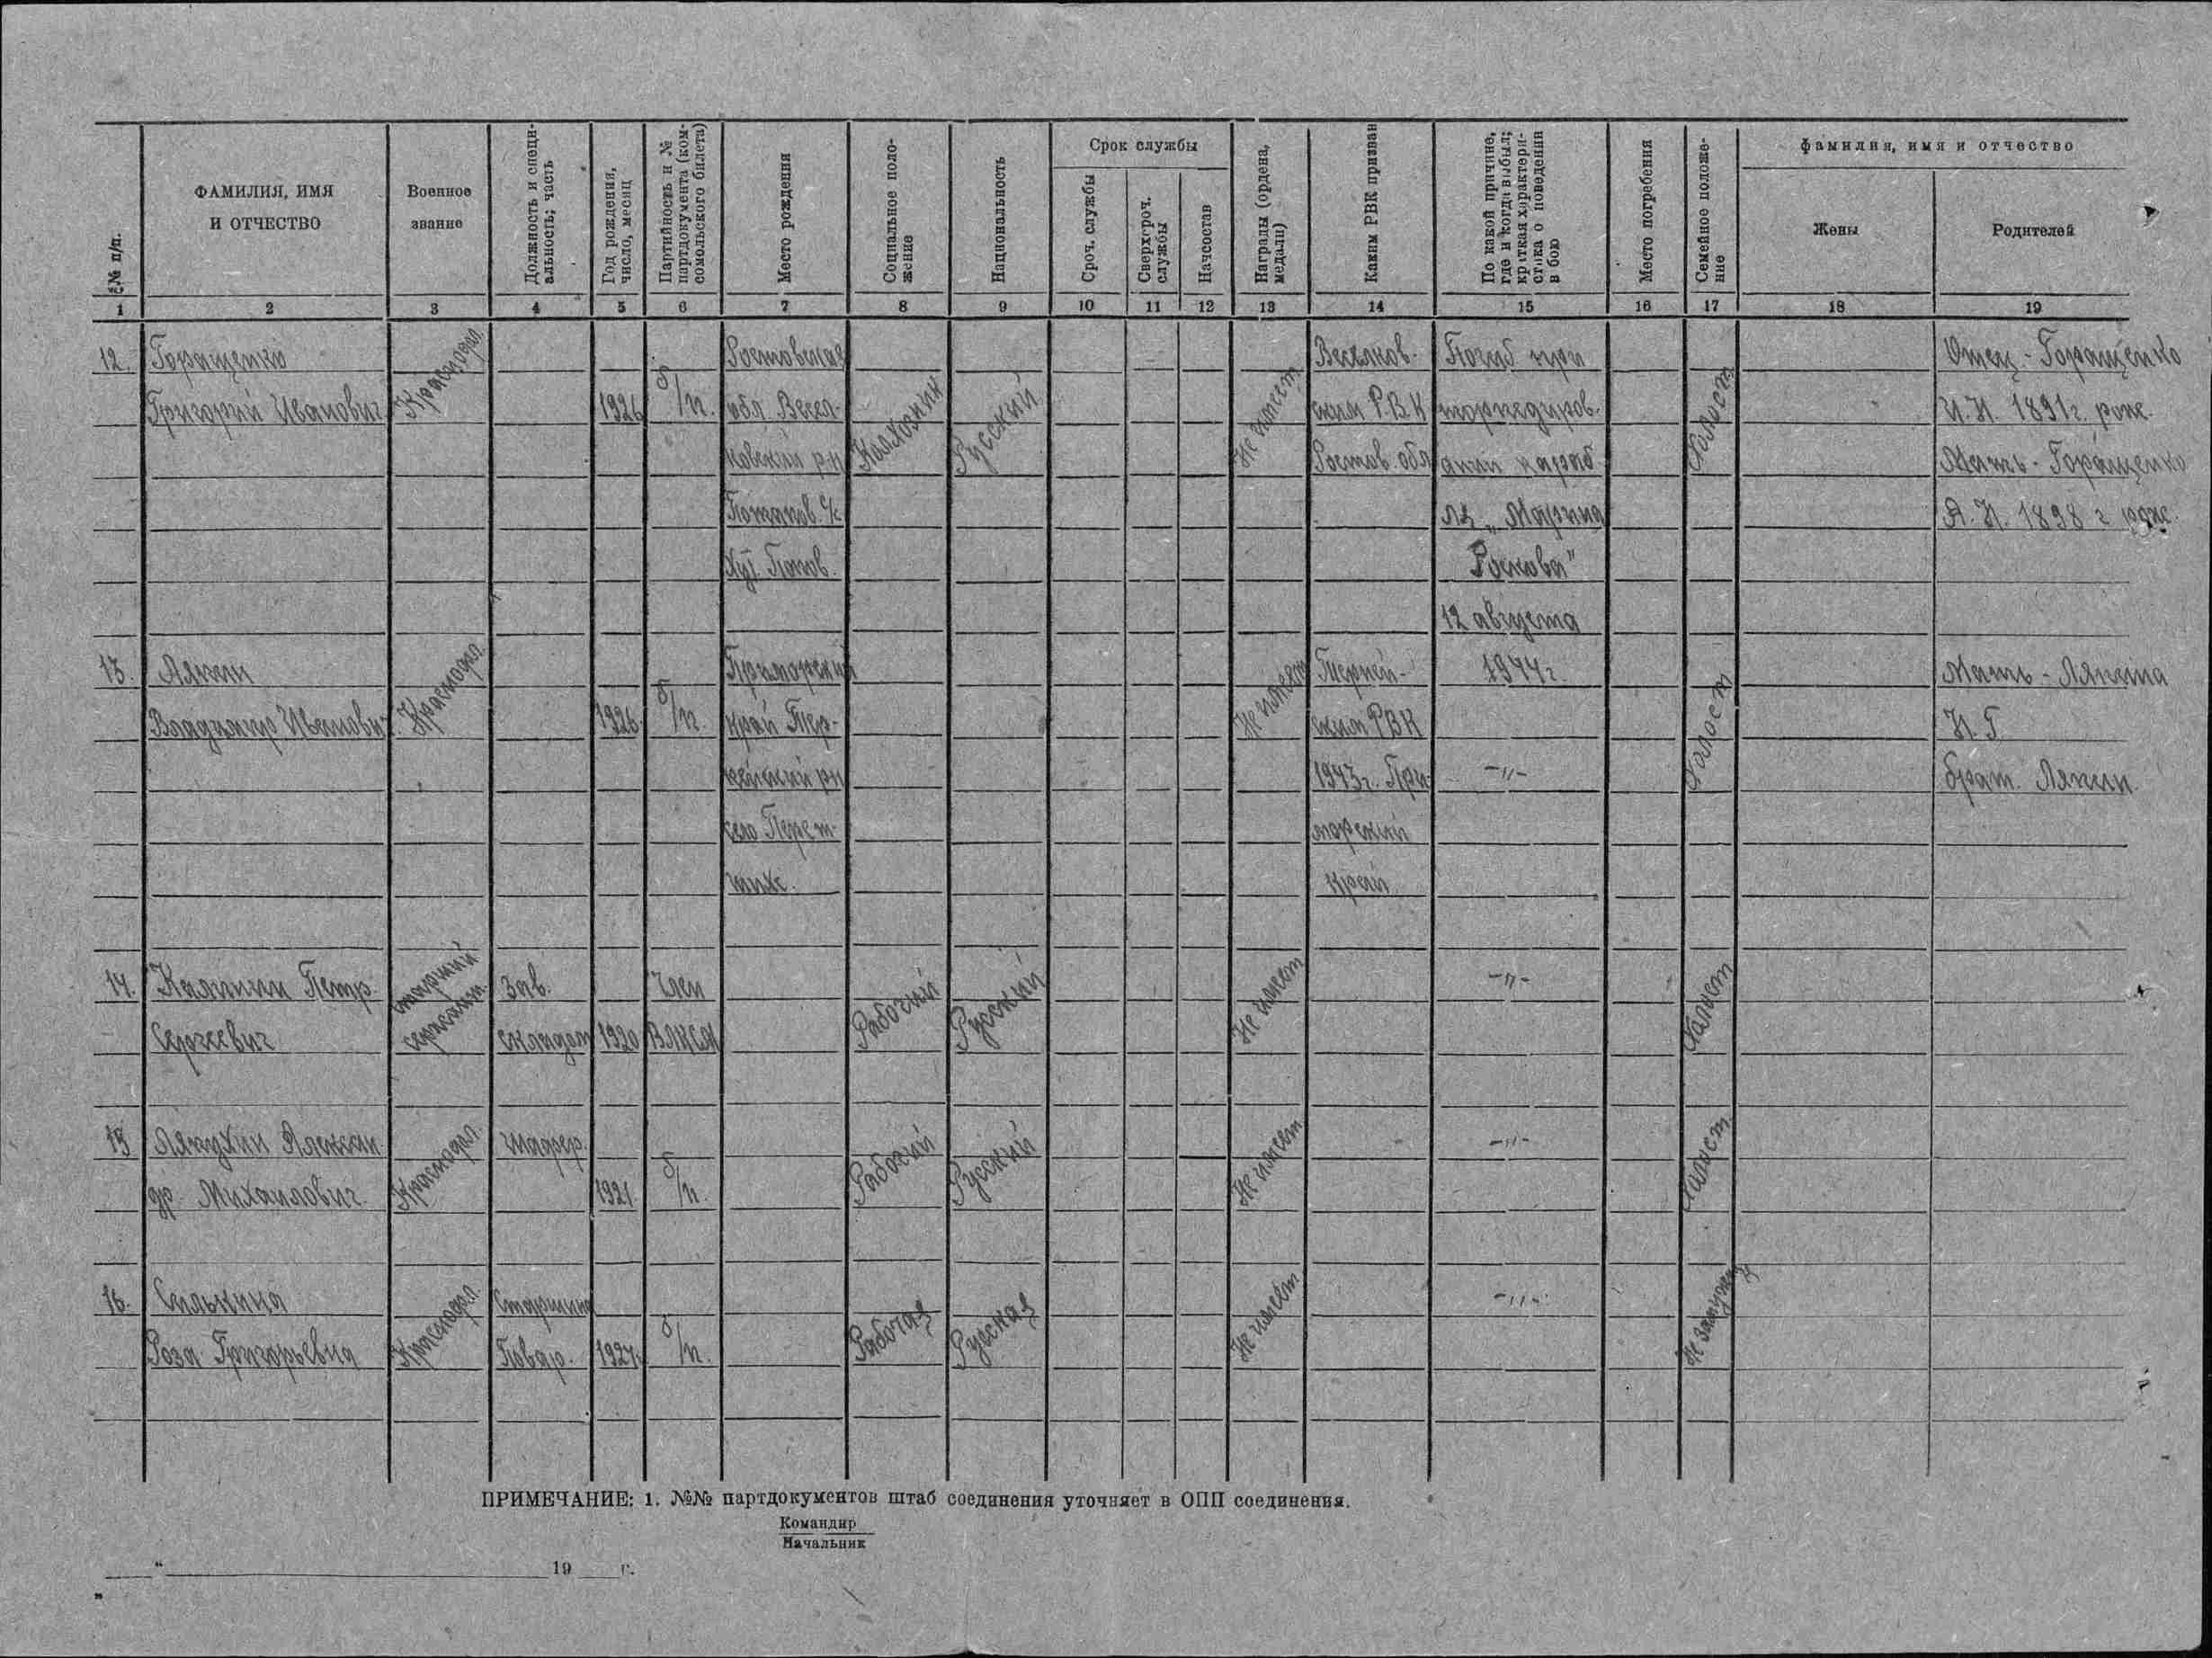 №№ п/п.
ФАМИЛИЯ, ИМЯ
И ОТЧЕСТВО
Военное
звание
Должность и специ-
альность; часть
Год рождения,
число, месяц
Партийность и №
партдокумента (ком-
сомольского билета)
Место рождения
Социальное поло-
жение
Национальность
Срок службы
Сроч. службы
Сверхсроч.
службы
Начсостав
Награды (ордена,
медали)
Каким РВК призван
По какой причине,
где и когда выбыл;
краткая характери-
стика о поведении
в бою
Место погребения
Семейное положе-
ние
фамилия, имя и отчество
Жены
Родителей
1 2 3 4 5 6 7 8 9 10 11 12 13 14 15 16 17 18 19
12. Горащенко
Григорий Иванович
Краснофл.
1926
б/п.
Ростовская
обл. Весел-
ковский рн
Потапов. с/с
Хут. Попов.
Колхозник
Русский
Не имеет
Веселков-
ским Р.В.К
Ростов. обл
Погиб при
торпедиров-
ании кораб-
ля „Марина
Роскова"
12 августа
1944 г.
Холост
Отец - Горащенко
И.И. 1891 г. рож.
Мать - Горащенко
А.И. 1898 г рож.
13. Лякин
Владимир Иванович
Краснофл.
1926.
б/п.
Приморский
край Тер-
нейский рн
село Перет-
тихе.
Не имеет
Терней-
ским РВК
1943 г. При-
морский
край
-"-
Холост
Мать - Лякина
И.Г
брат. Лякин.
14. Калинин Петр
Сергеевич
старший
сержант.
Зав.
складом
1920
Член
ВЛКСМ
Рабочий
Русский
Не имеет
-"-
Холост
15 Лякухин Алексан-
др. Михайлович.
Краснофл.
Шофер.
1921.
б/п.
Рабочий
Русский
Не имеет
-"-
Холост
16. Силькина
Роза Григорьевна
Краснофл.
Старшина
Повар.
1927.
б/п.
Рабочая
Русская
Не имеет
-"-
Не замужем
ПРИМЕЧАНИЕ: 1. №№ партдокументов штаб соединения уточняет в ОПП соединения.
Командир
Начальник
„ “ 19 г.